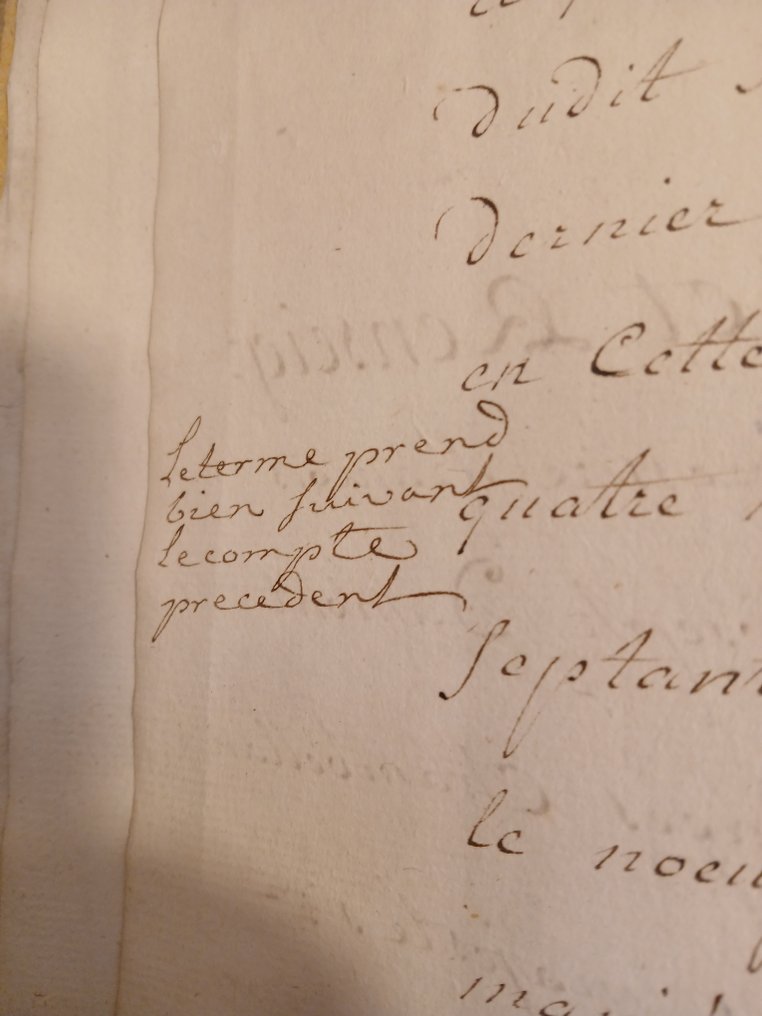 Dudit
Dernier
en Cette
le terme prend
bien suivant
le compte
precedent
quatre
septant
le noeu